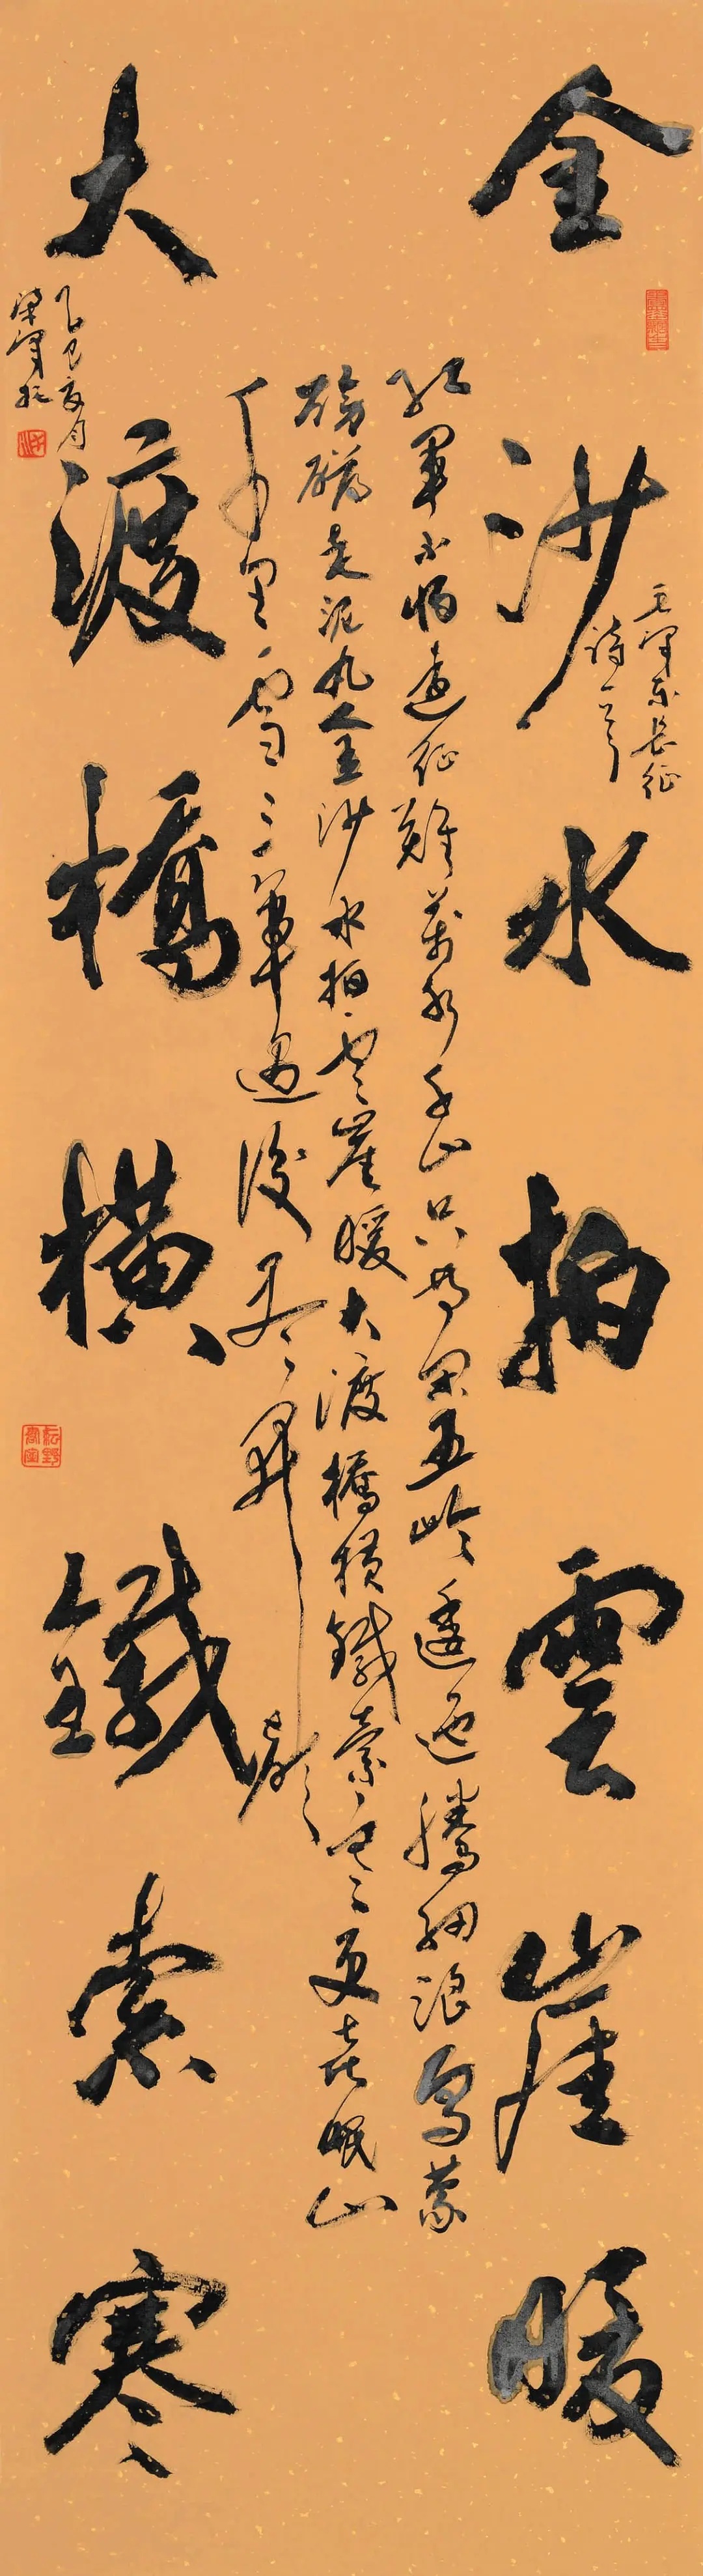 金沙水拍雲崖暖
毛澤東長征
詩一首
紅軍不怕遠征難萬水千山只等閑五嶺逶迤騰細浪烏蒙
磅礴走泥丸金沙水拍雲崖暖大渡橋橫鐵索寒更喜岷山
千里雪三軍過後盡開顏
大渡橋橫鐵索寒
乙巳夏月